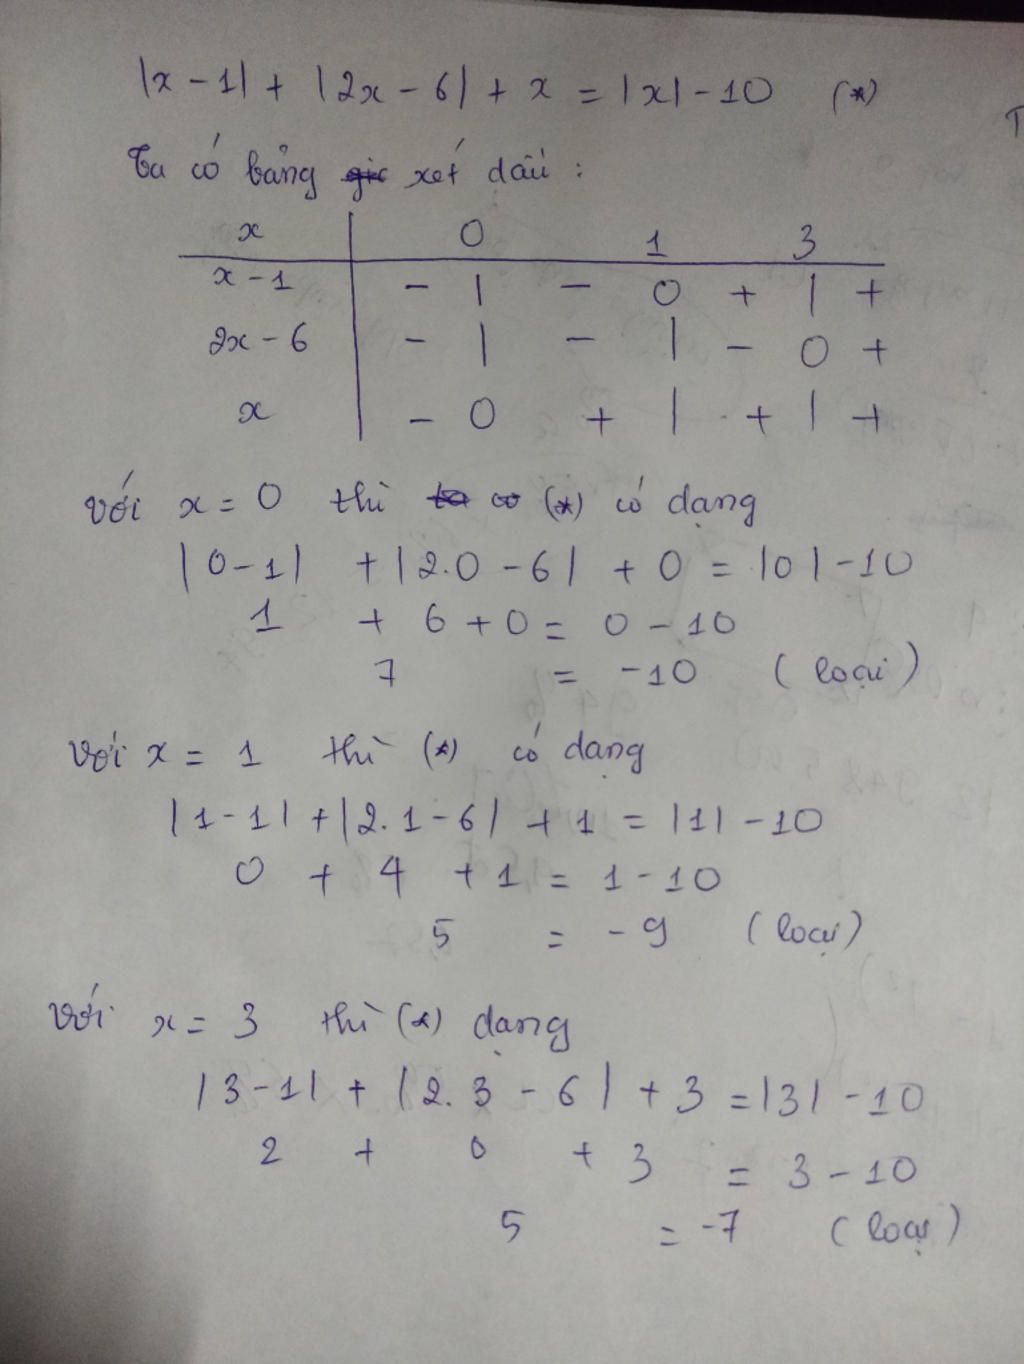 |x - 1| + |2x - 6| + x = |x| - 10 (*)
Ta có bảng xét dấu :
x 0 1 3
x - 1 - | - 0 + | +
2x - 6 - | - | - 0 +
x - 0 + | + | +
với x = 0 thì (*) có dạng
|0 - 1| + |2.0 - 6| + 0 = |0| - 10
1 + 6 + 0 = 0 - 10
7 = -10 (loại)
với x = 1 thì (*) có dạng
|1 - 1| + |2.1 - 6| + 1 = |1| - 10
0 + 4 + 1 = 1 - 10
5 = - 9 (loại)
với x = 3 thì (*) dạng
|3 - 1| + |2.3 - 6| + 3 = |3| - 10
2 + 0 + 3 = 3 - 10
5 = -7 (loại)